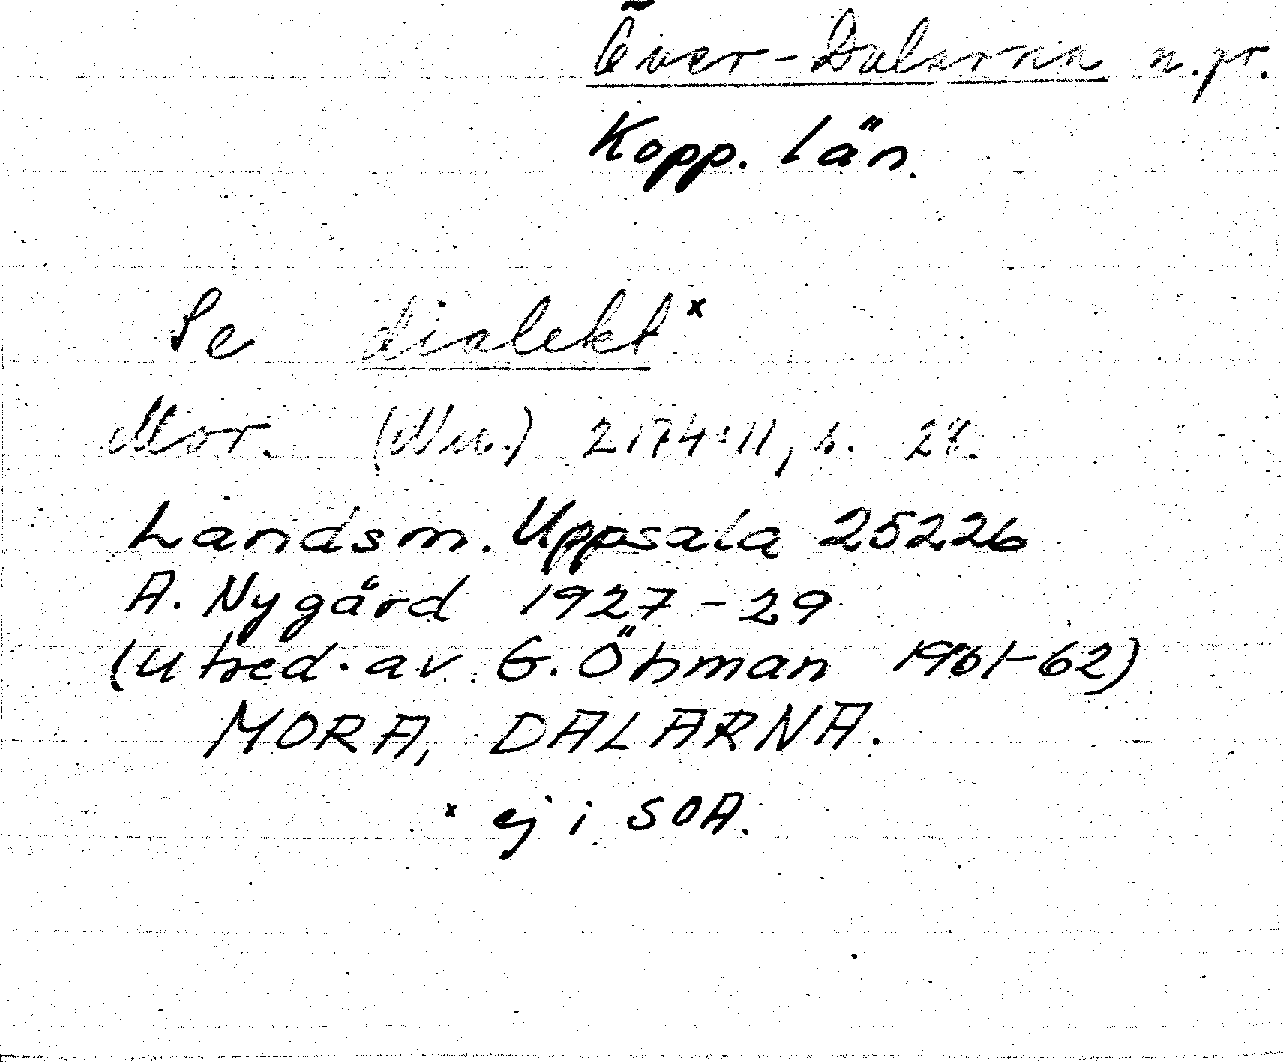 Över-Dalarna n.pr.
Kopp. län.
Se dialekt x
Mor. (Nu.) 2174:11, s. 28.
Landsm. Uppsala 25226
A. Nygård 1927-29
(Utred. av G. Öhman 1961-62)
MORA, DALARNA.
x ej i SOA.